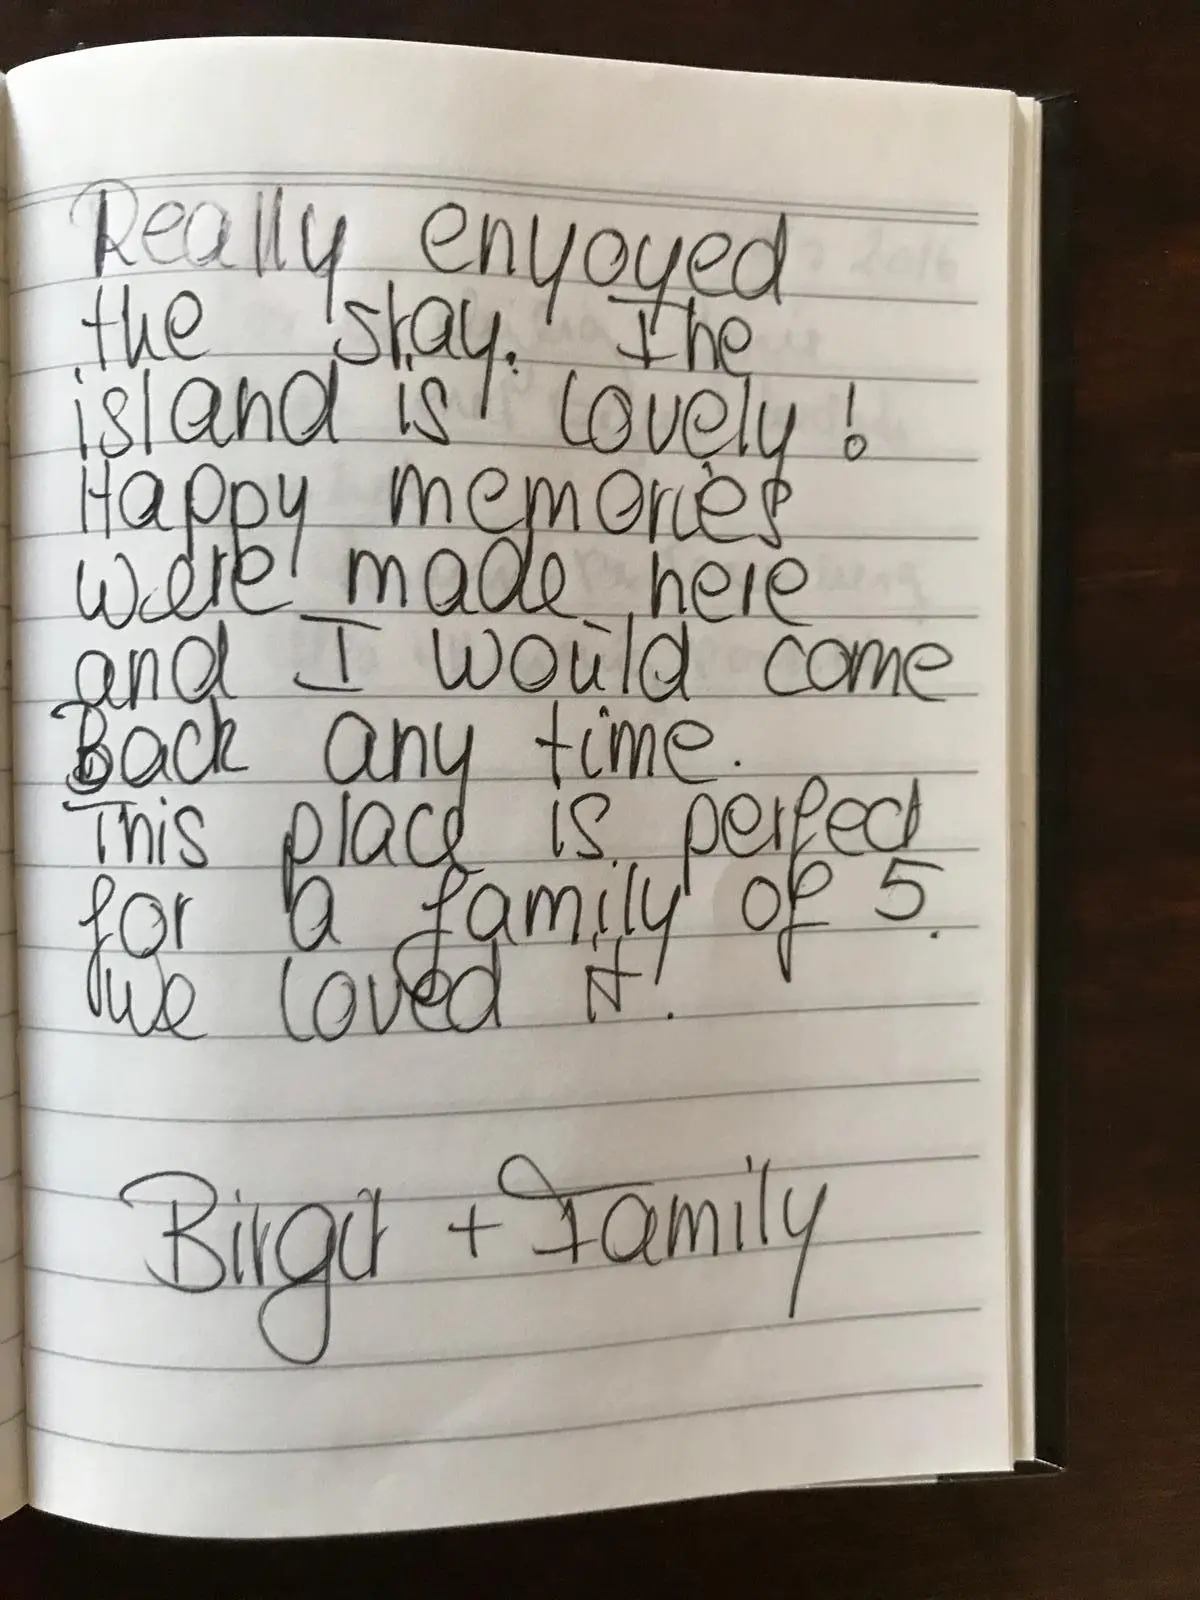 Really enyoyed
the stay. The
island is lovely!
Happy memories
were made here
and I would come
Back any time.
This place is perfect
for a family of 5.
we loved it.
Birgit + Family